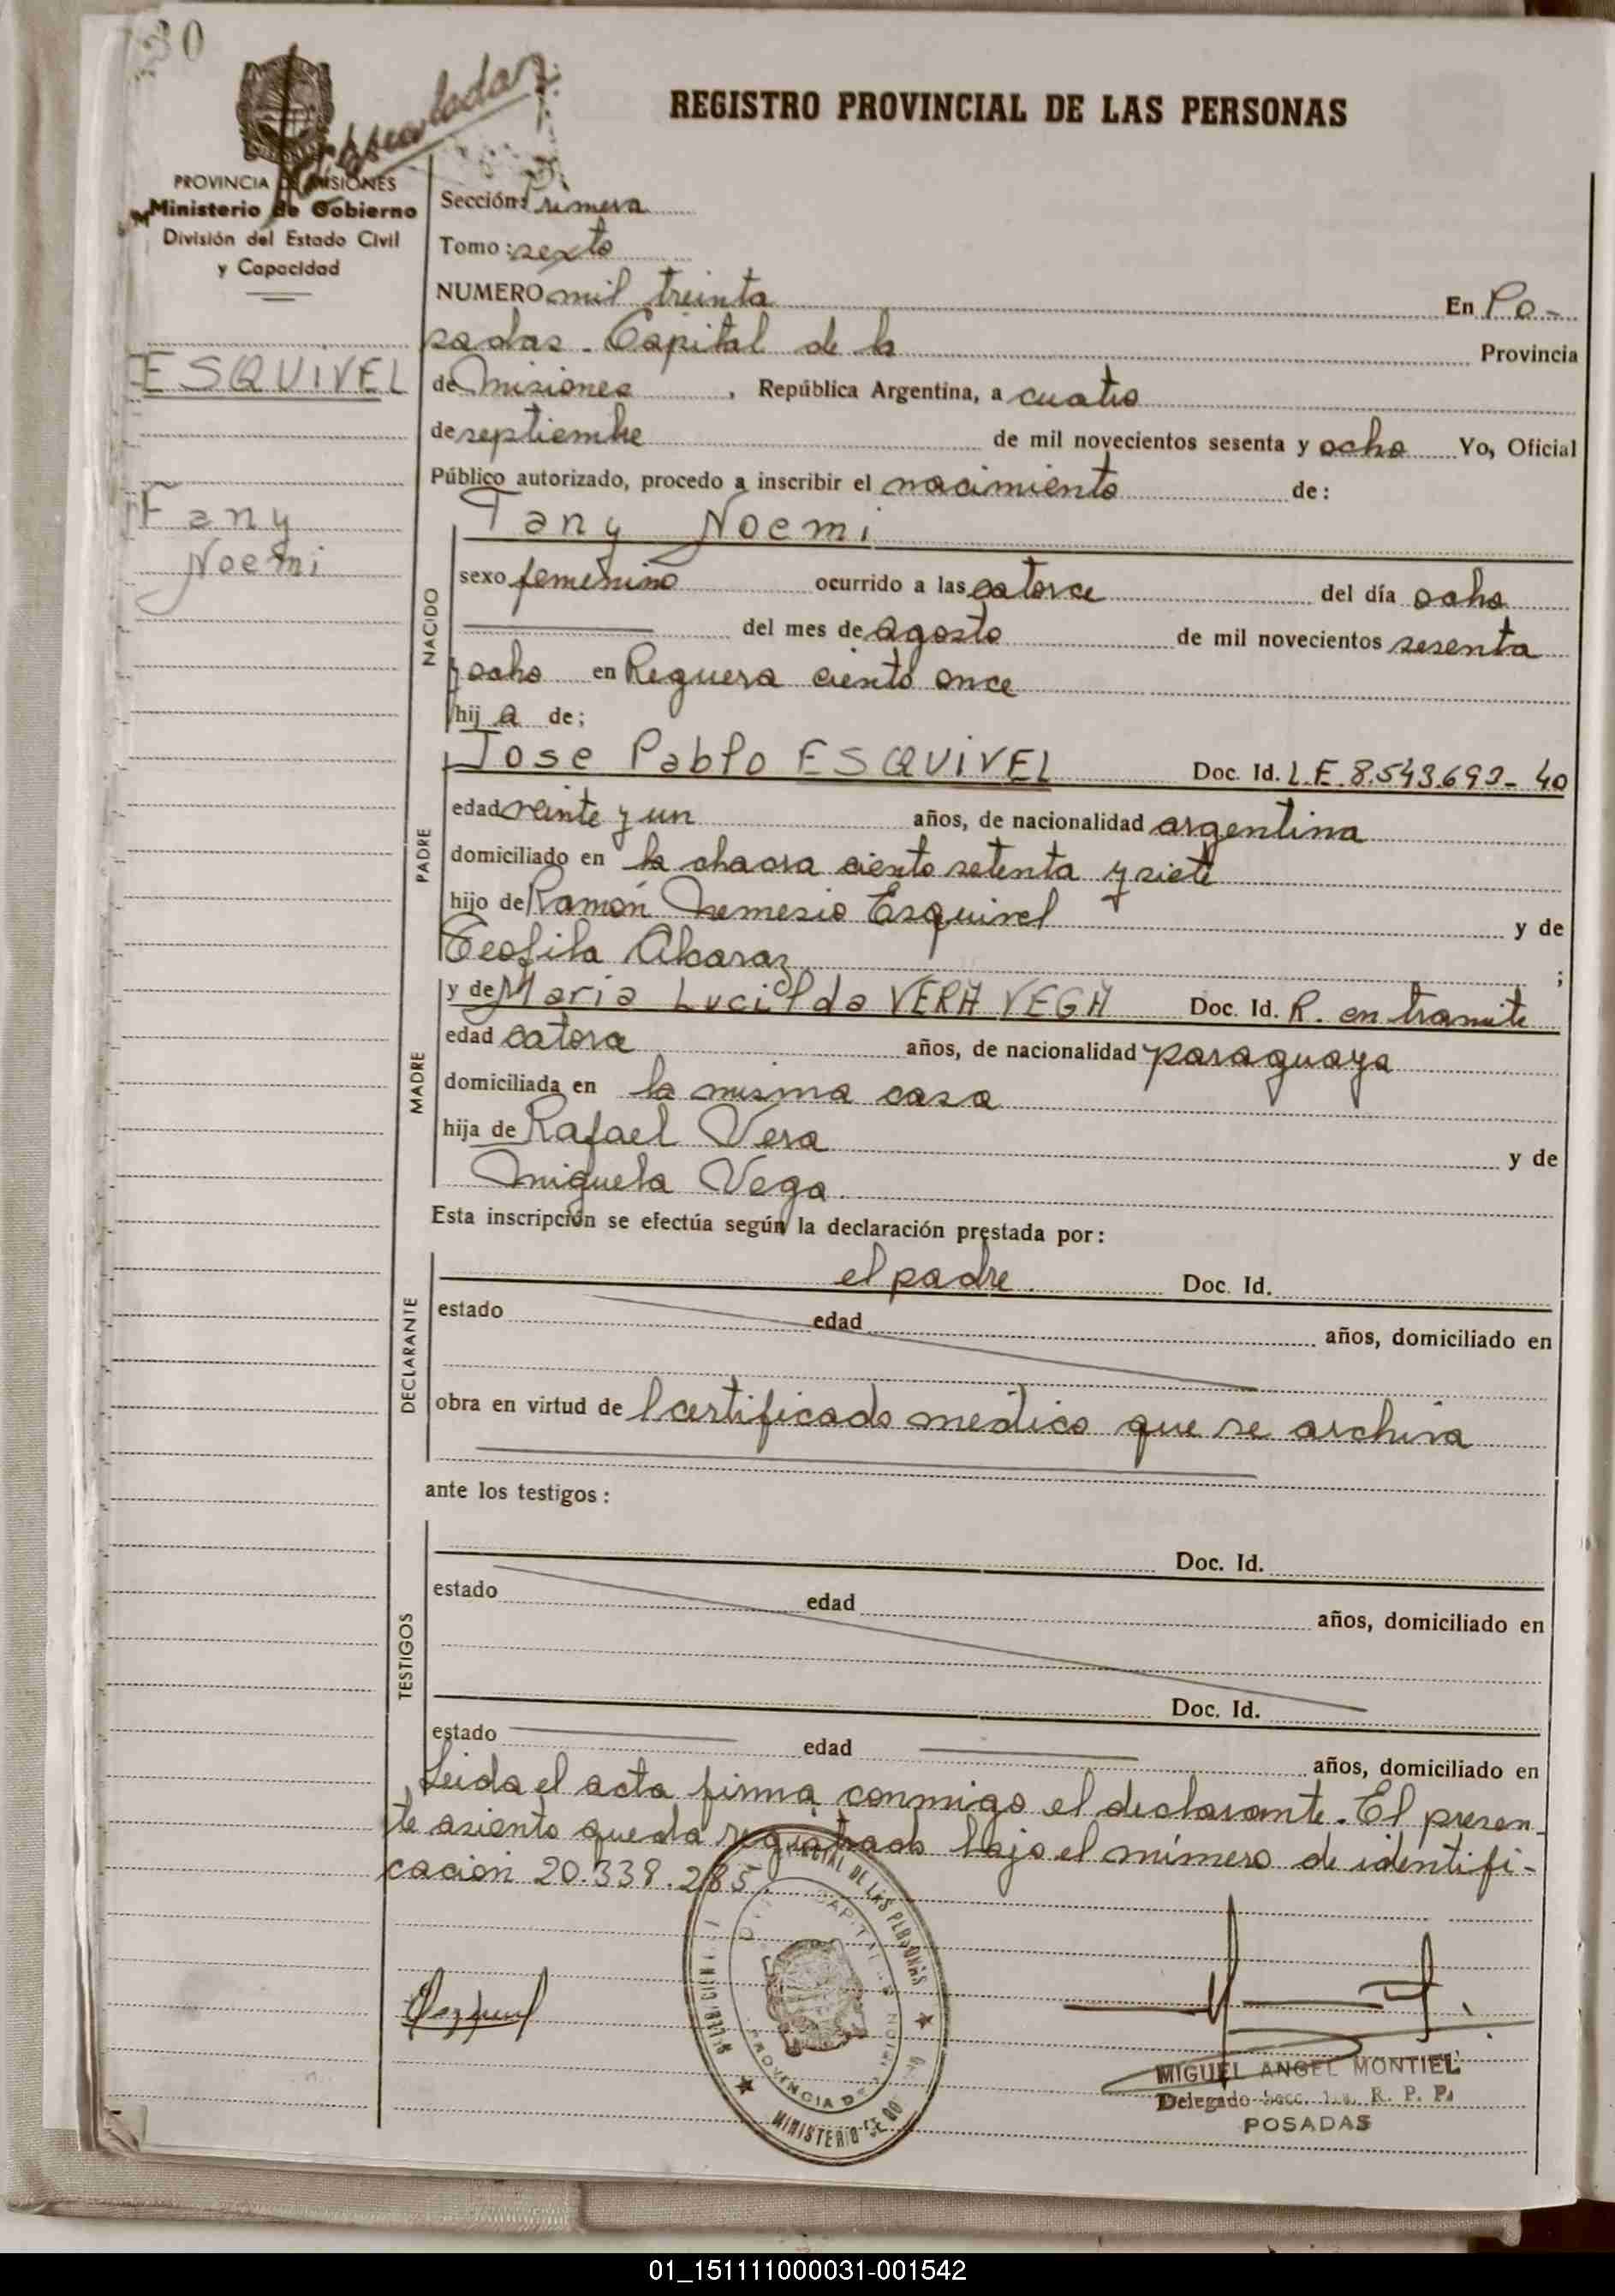 30
REGISTRO PROVINCIAL DE LAS PERSONAS
PROVINCIA DE MISIONES
Ministerio de Gobierno
División del Estado Civil
y Capacidad
Sección: Primera
Tomo: sexto
NUMERO mil treinta En Po-
sadas. Capital de la Provincia
ESQUIVEL
de Misiones, República Argentina, a cuatro
de septiembre de mil novecientos sesenta y ocho Yo, Oficial
Público autorizado, procedo a inscribir el nacimiento de:
Fany
Noemi
Fany Noemi
NACIDO
sexo femenino ocurrido a las catorce del día ocho
del mes de agosto de mil novecientos sesenta
y ocho en Reguera ciento once
hija de;
PADRE
Jose Pablo ESQUIVEL Doc. Id. L.E. 8.543.692- 40
edad veinte y un años, de nacionalidad argentina
domiciliado en la chacra ciento setenta y siete
hijo de Ramón Nemesio Esquivel y de
Teofila Alcaraz ;
MADRE
y de Maria Lucilda VERA VEGA Doc. Id. R. en tramite
edad catorce años, de nacionalidad paraguaya
domiciliada en la misma casa
hija de Rafael Vera y de
Miguela Vega.
Esta inscripción se efectúa según la declaración prestada por:
DECLARANTE
el padre. Doc. Id.
estado edad años, domiciliado en
obra en virtud de l certificado medico que se archiva
ante los testigos:
TESTIGOS
Doc. Id.
estado edad años, domiciliado en
Doc. Id.
estado edad años, domiciliado en
Leida el acta firma conmigo el declarante. El presen-
te asiento queda registrado bajo el número de identifi-
cación 20.338.285.
DE LAS PERSONAS
PROVINCIA DE
MINISTERIO DE GO
MIGUEL ANGEL MONTIEL
Delegado Secc. 1ra. R. P. P.
POSADAS
01_151111000031-001542